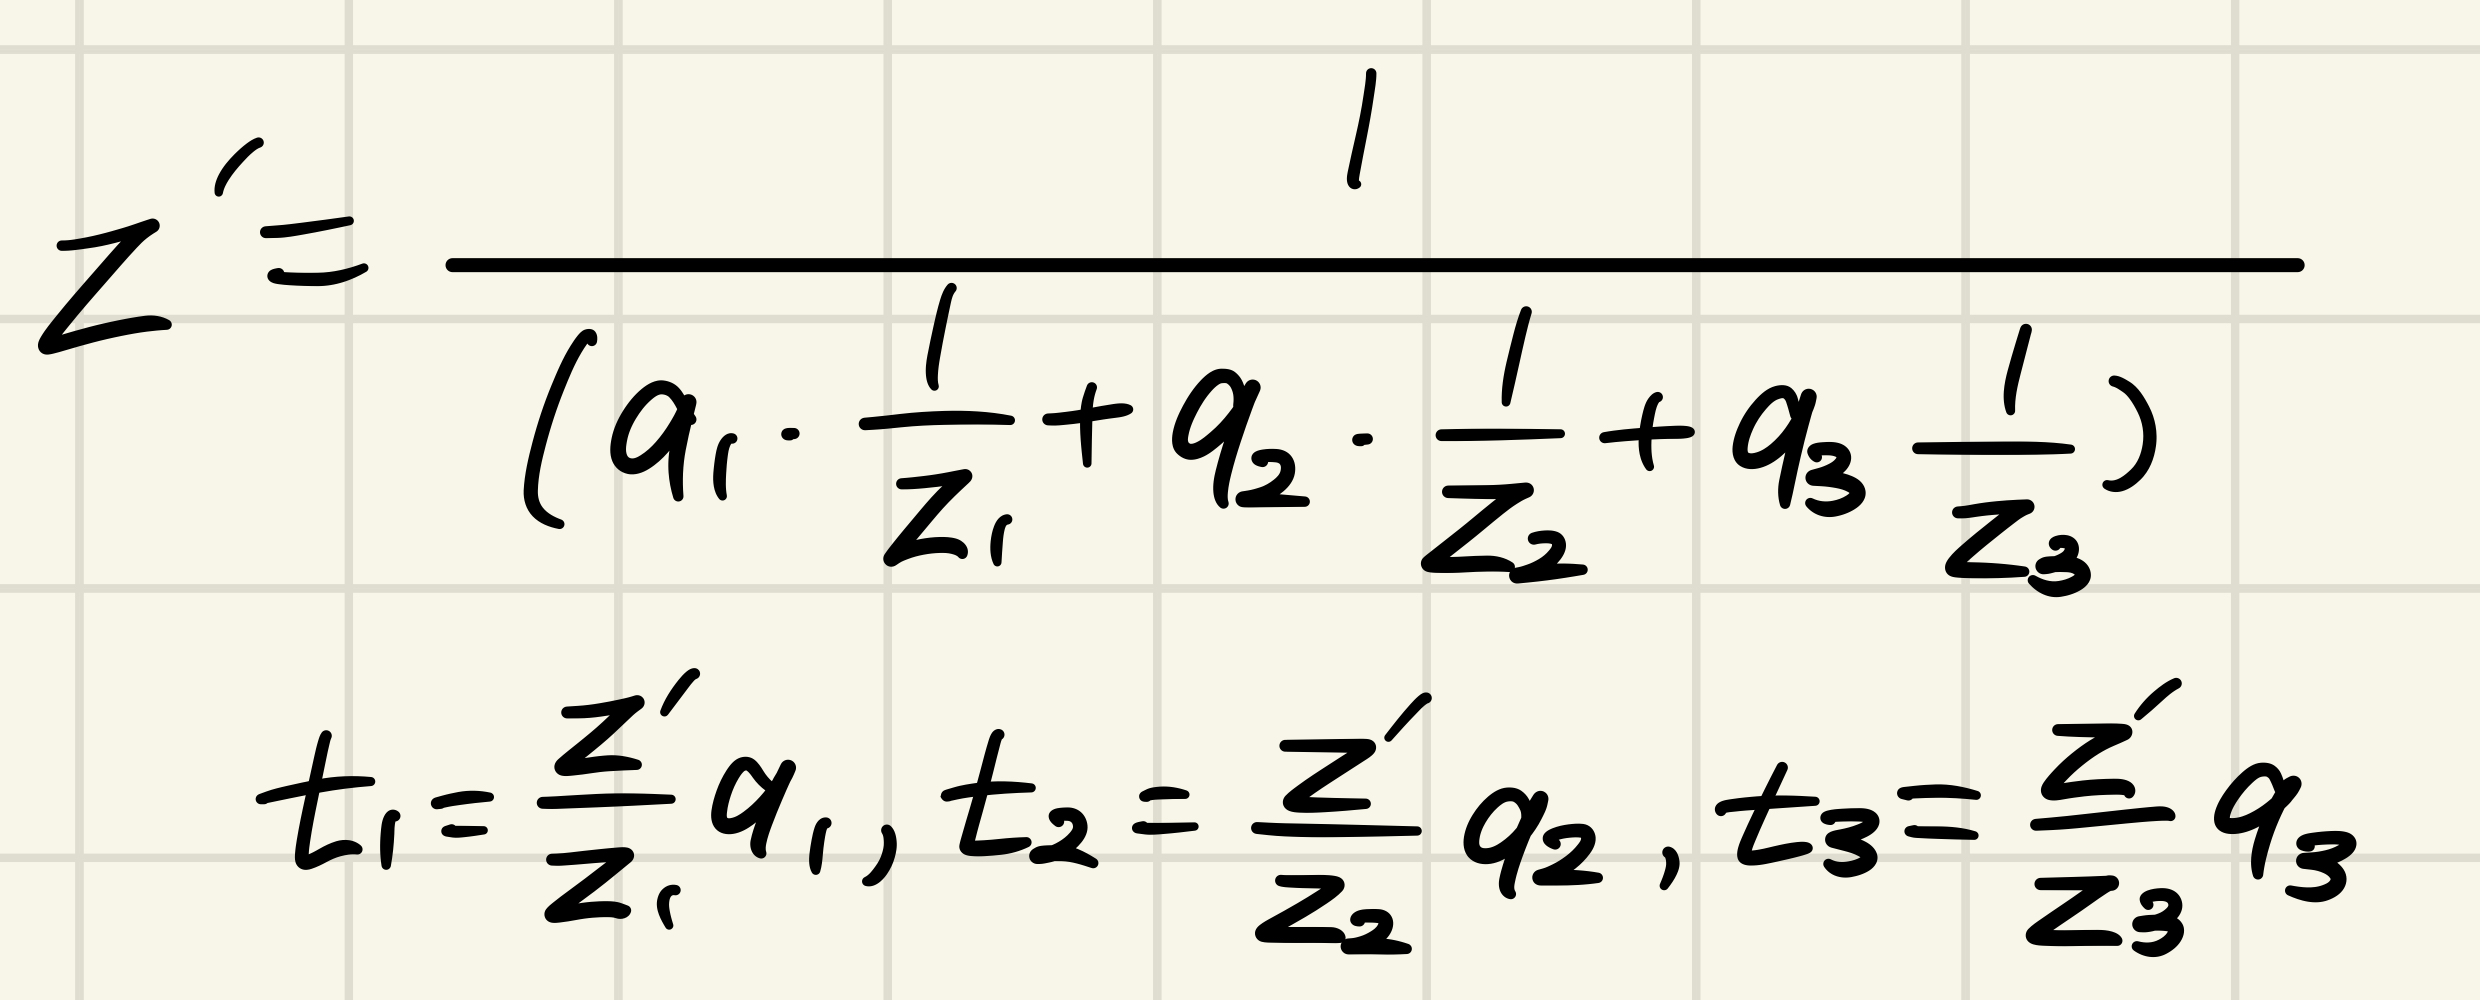 z' = 1 / (q₁ · 1/z₁ + q₂ · 1/z₂ + q₃ 1/z₃)
t₁ = z'/z₁ q₁, t₂ = z'/z₂ q₂, t₃ = z'/z₃ q₃